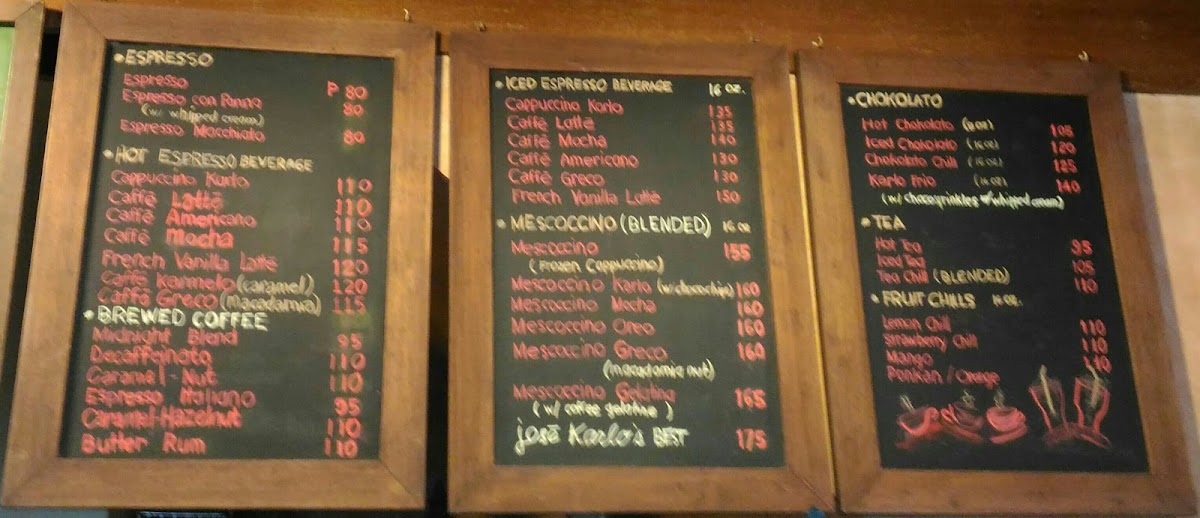 • ESPRESSO
Espresso P 80
Espresso con Panna 80
(w/ whipped cream)
Espresso Macchiato 80
• HOT ESPRESSO BEVERAGE
Cappuccino Karlo 110
Caffé Latté 110
Caffé Americano 110
Caffé Mocha 115
French Vanilla Latté 120
Caffé Karmelo (caramel) 120
Caffé Greco (macadamia) 115
• BREWED COFFEE
Midnight Blend 95
Decaffeinato 110
Caramel-Nut 110
Espresso Italiano 95
Caramel-Hazelnut 110
Butter Rum 110
• ICED ESPRESSO BEVERAGE 16 oz.
Cappuccino Karlo 135
Caffé Latté 135
Caffé Mocha 140
Caffé Americano 130
Caffé Greco 130
French Vanilla Latté 150
• MESCOCCINO (BLENDED) 16 oz
Mescoccino 155
(Frozen Cappuccino)
Mescoccino Karlo (w/ chocochip) 160
Mescoccino Mocha 160
Mescoccino Oreo 160
Mescoccino Greco 160
(macadamia nut)
Mescoccino Gelatina 165
(w/ coffee gelatine)
josé Karlo's BEST 175
• CHOKOLATO
Hot Chokolato (8oz) 105
Iced Chokolato (16oz) 120
Chokolato Chill (16oz) 125
Karlo Frio (16oz) 140
(w/ chocosprinkles & whipped cream)
• TEA
Hot Tea 95
Iced Tea 105
Tea Chill (BLENDED) 110
• FRUIT CHILLS 16 oz.
Lemon Chill 110
Strawberry Chill 110
Mango 110
Ponkan / Orange